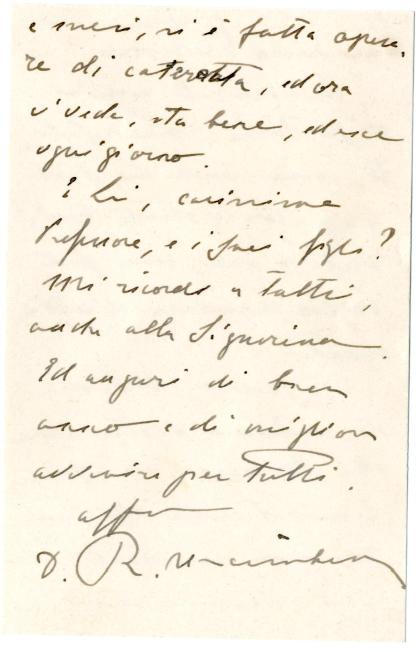 e mesi, si è fatta opera
re di cateratta, ed ora
ci vede, sta bene, ed esce
ogni giorno.
E Lei, carissimo
Professore, e i suoi figli?
Mi ricordi a tutti,
anche alla Signorina.
Ed auguri di buon
anno e di miglior
avvenire per tutti.
aff
D. R.